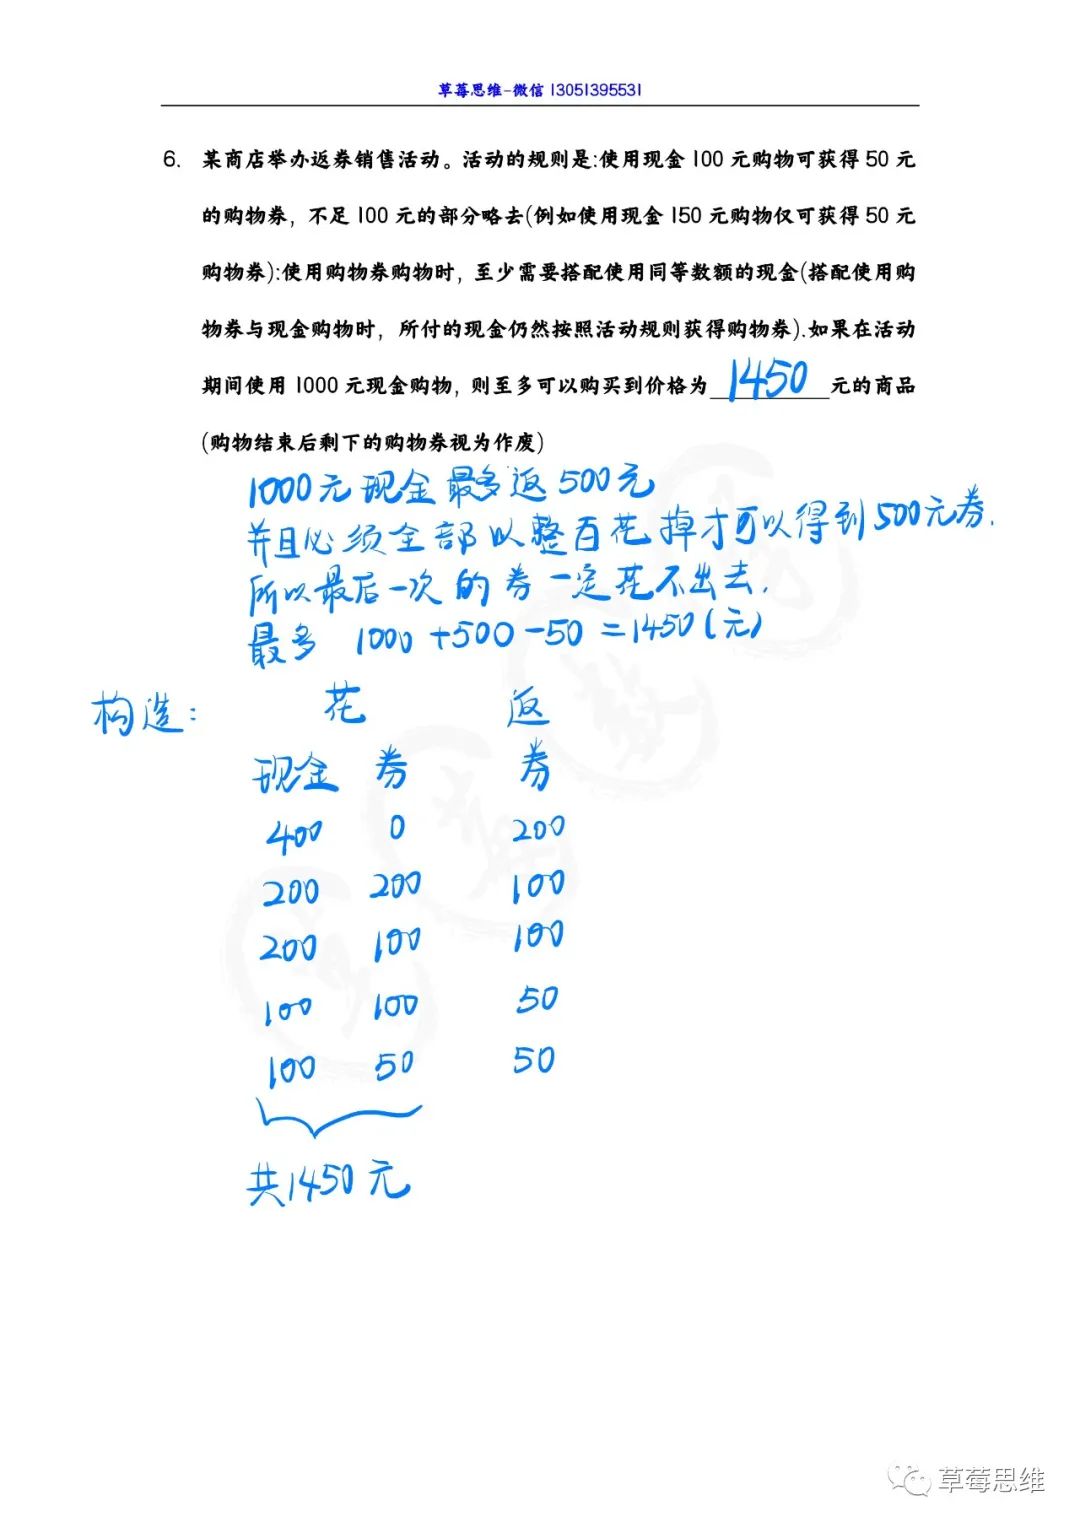 草莓思维-微信 13051395531
6. 某商店举办返券销售活动。活动的规则是:使用现金 100 元购物可获得 50 元
的购物券，不足 100 元的部分略去(例如使用现金 150 元购物仅可获得 50 元
购物券):使用购物券购物时，至少需要搭配使用同等数额的现金(搭配使用购
物券与现金购物时，所付的现金仍然按照活动规则获得购物券).如果在活动
期间使用 1000 元现金购物，则至多可以购买到价格为 1450 元的商品
(购物结束后剩下的购物券视为作废)
1000元现金最多返500元
并且必须全部以整百花掉才可以得到500元券.
所以最后一次的券一定花不出去.
最多 1000+500-50=1450(元)
构造: 花 返
现金 券 券
400 0 200
200 200 100
200 100 100
100 100 50
100 50 50
共1450元
草莓思维